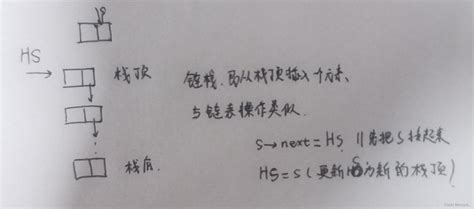 s
HS
栈顶
链栈,即从栈顶插入个元素,
与链表操作类似.
s→next = HS //先把s挂起来
HS=s(更新s为新的栈顶)
栈底.